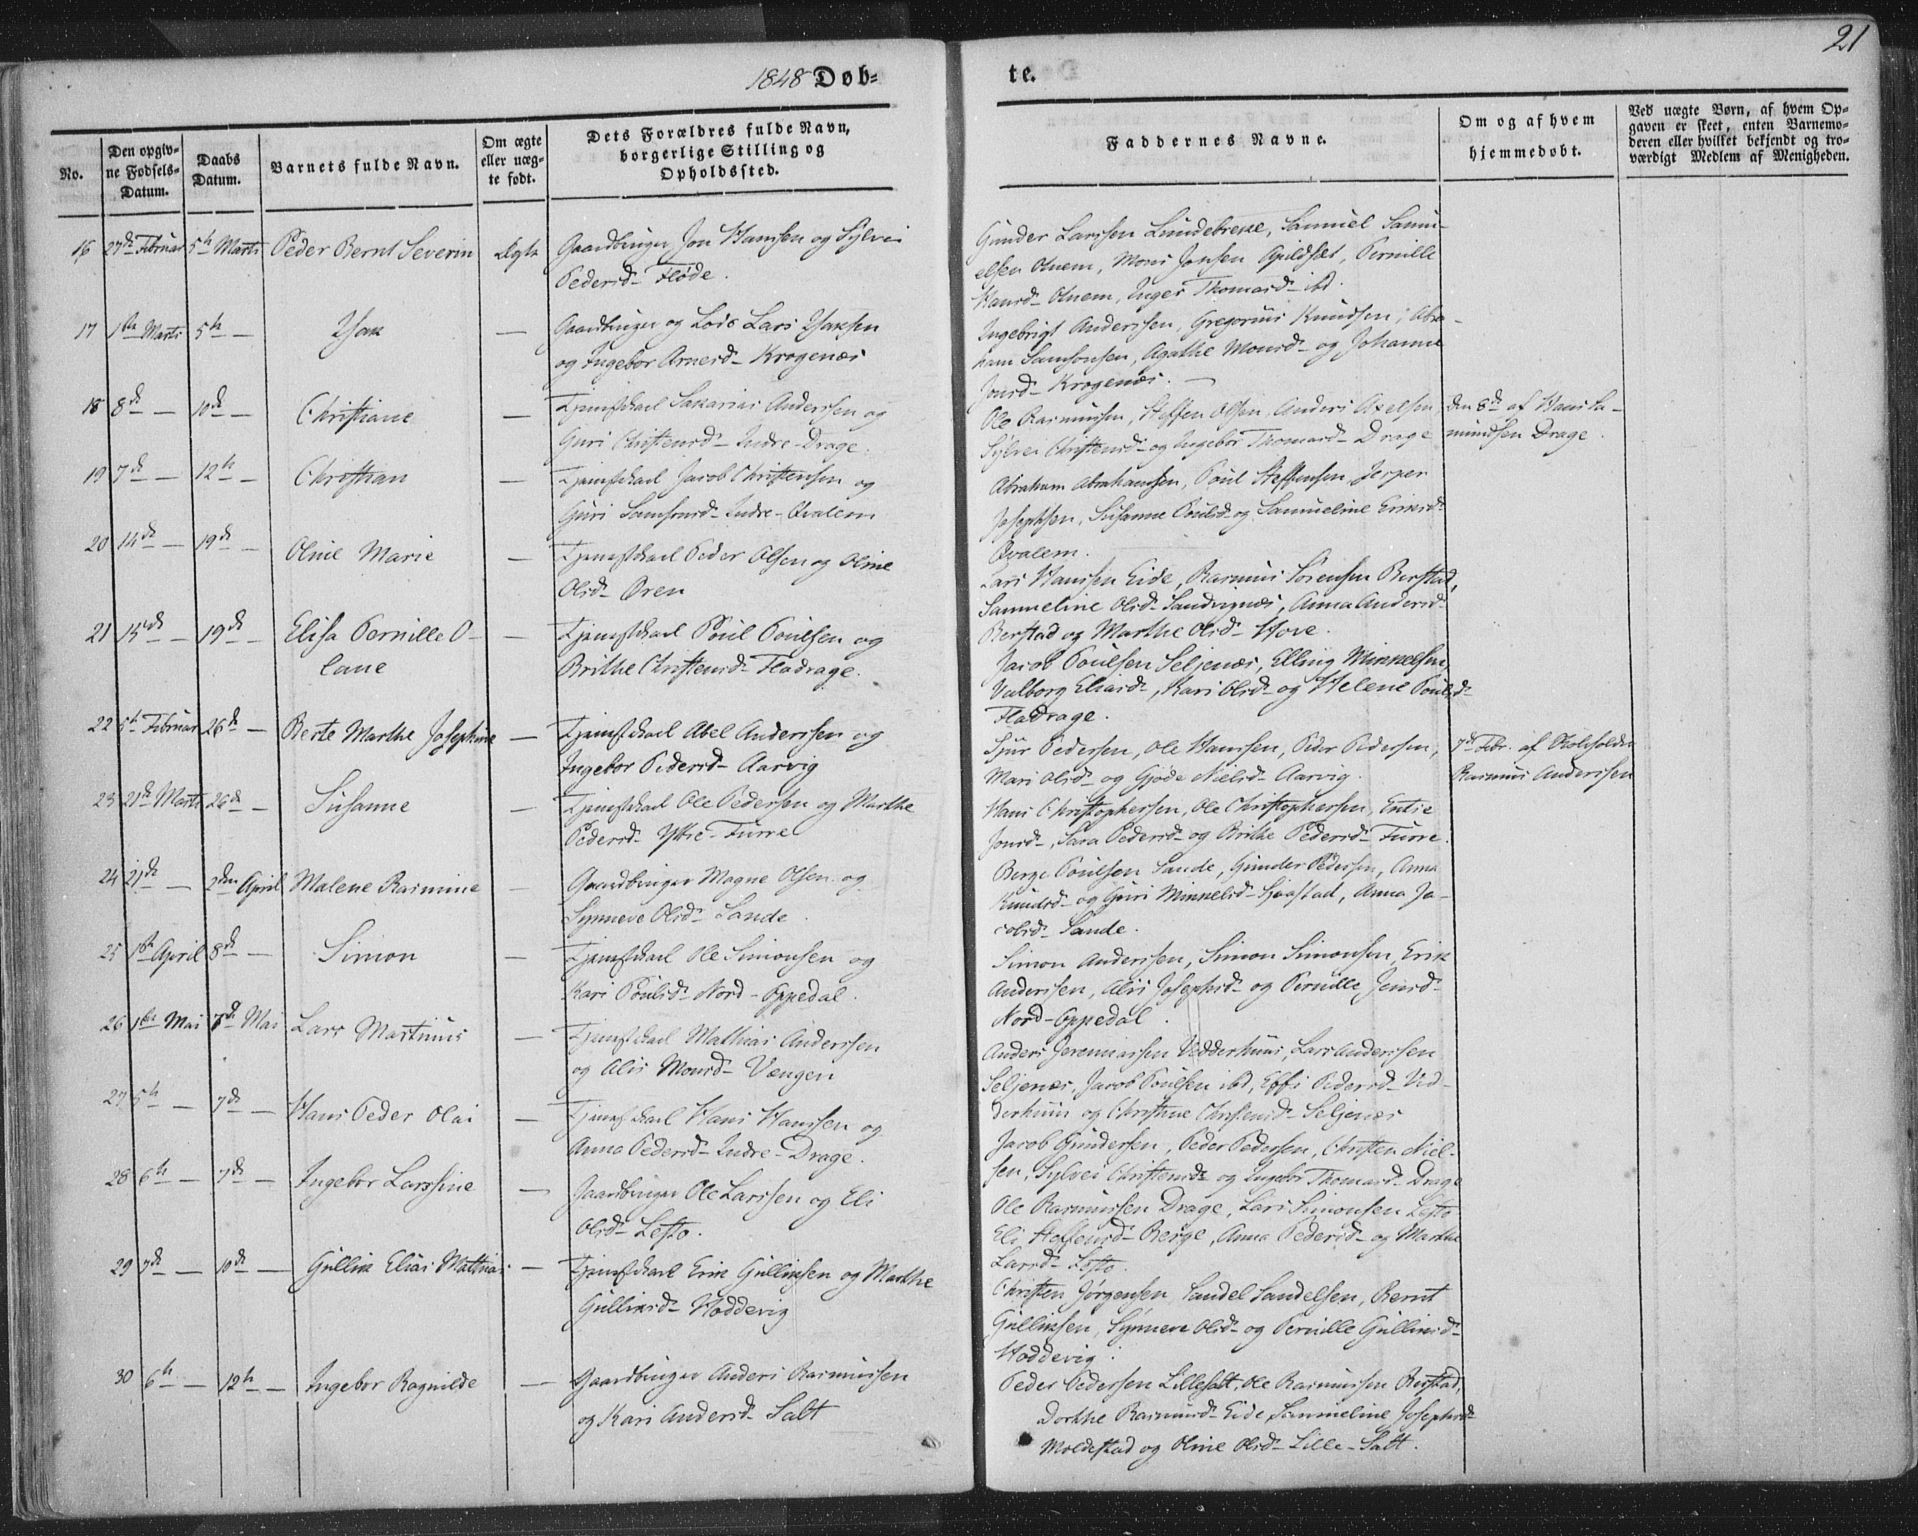 21
1848 Døb=
te.
No.
Den opgiv=
ne Fødsels=
Datum.
Daabs
Datum.
Barnets fulde Navn.
Om ægte
eller uæg=
te født.
Dets Forældres fulde Navn,
borgerlige Stilling og
Opholdssted.
Faddernes Navne.
Om og af hvem
hjemmedøbt.
Ved uægte Børn, af hvem Op=
gaven er skeet, enten Barnemo=
deren eller hvilket bekjendt og tro=
værdigt Medlem af Menigheden.
16 27de Februar 5te Marts Peder Bernt Severin Ægte Gaardbruger Jon Hansen og Sylvei
Pedersd- Fløde.
Gunder Larssen Lundebrekke, Samuel Samu-
elsen Otnem, Mons Jonsen Apildset, Pernille
Hansd- Otnem, Inger Thomasd- ibd.
17 1ste Marts 5te — Ysak — Gaardbruger og Lods Lars Ysaksen
og Ingebor Arnesd- Krogenæs
Ingebrigt Anderssen, Gregorius Knudsen, Abra-
ham Samsonsen, Agathe Monsd- og Johanne
Jonsd- Krogenæs. —
18 8de — 10de — Christiane — Tjenestkarl Sakarias Anderssen og
Guri Christensd- Indre-Drage.
Ole Rasmussen, Steffen Olsen, Anders Axelsen,
Sylvei Christensd- og Ingebor Thomasd- Drage
den 8de af Hans Sa-
mundsen Drage.
19 7de — 12te — Christian — Tjenestkarl Jacob Christensen og
Guri Samsonsd- Indre-Qvalem
Abraham Abrahamsen, Poul Steffensen, Jesper
Josephsen, Susanne Poulsd- og Samueline Eriksd-
Qvalem.
20 14de — 19de — Oline Marie — Tjenestkarl Peder Olsen og Oline
Olsd- Øren
Lars Hanssen Eide, Rasmus Sørensen Berstad,
Sammeline Olsd- Sandvignæs, Anna Andersd-
Berstad og Marthe Olsd- Hove.
21 15de — 19de — Elisa Pernille O-
lane
— Tjenestkarl Poul Poulsen og
Brithe Christensd- Fladrage.
Jacob Poulsen Seljenæs, Elling Mikkelsen,
Valborg Eliasd-, Kari Olsd- og Helene Poulsd-
Fladrage.
22 5te Februar 26de — Berte Marthe Josephine — Tjenestkarl Abel Anderssen og
Ingebor Pedersd- Aarvig
Sjur Pedersen, Ole Hanssen, Peder Pedersen,
Mari Olsd- og Gjøde Nielsd- Aarvig.
7de Febr. af Skoleholder
Rasmus Anderssen
23 21de Marts 26de — Susanne — Tjenestkarl Ole Pedersen og Marthe
Pedersd- Ytre-Furre
Hans Christophersen, Ole Christophersen, Entie
Jonsd-, Sara Pedersd- og Brithe Pedersd- Furre.
24 21de — 2den April Malene Rasmine — Gaardbruger Magne Olsen og
Synneve Olsd- Sande.
Berge Poulsen Sande, Gunder Pedersen, Anna
Knudsd- og Guri Mikkelsd- Haastad, Anna Ja-
cobsd- Sande.
25 1ste April 8de — Simon — Tjenestkarl Ole Simonsen og
Kari Poulsd- Nord-Oppedal.
Simon Anderssen, Simon Simonsen, Erik
Anderssen, Alis Josephsd- og Pernille Jensd-
Nord-Oppedal.
26 1ste Mai 7de Mai Lars Martinus — Tjenestkarl Mathias Anderssen
og Alis Monsd- Vængen
Anders Jeremiassen Vedderhuus, Lars Anderssen
Seljenæs, Jacob Poulsen ibd, Eppi Pedersd- Ved-
derhuus og Christine Christensd- Seljenæs
27 5te — 7de — Hans Peder Olai — Tjenestkarl Hans Hanssen og
Anna Pedersd- Indre-Drage.
Jacob Gundersen, Peder Pedersen, Christen Niel-
sen, Sylvei Christensd- og Ingebor Thomasd- Drage
28 6te — 7de — Ingebor Larssine — Gaardbruger Ole Larssen og Eli
Olsd- Lefto.
Ole Rasmussen Drage, Lars Simonsen Lefto
Eli Steffensd- Berge, Anna Pedersd- og Marthe
Larsd- Lefto.
29 7de — 10de — Gullik Elias Mathias — Tjenestkarl Erik Gulliksen og Marthe
Gulliksd- Hoddevig
Christen Jørgensen, Sandel Sandelsen, Bernt
Gulliksen, Synneve Olsd- og Pernille Gulliksd-
Hoddevig.
30 6te — 12te — Ingebor Ragnilde — Gaardbruger Anders Rasmussen
og Kari Andersd- Salt
Peder Pedersen Lillesalt, Ole Rasmussen Berstad,
Dorthe Rasmusd- Eide, Sammeline Josephsd-
Moldestad og Oline Olsd- Lille-Salt.